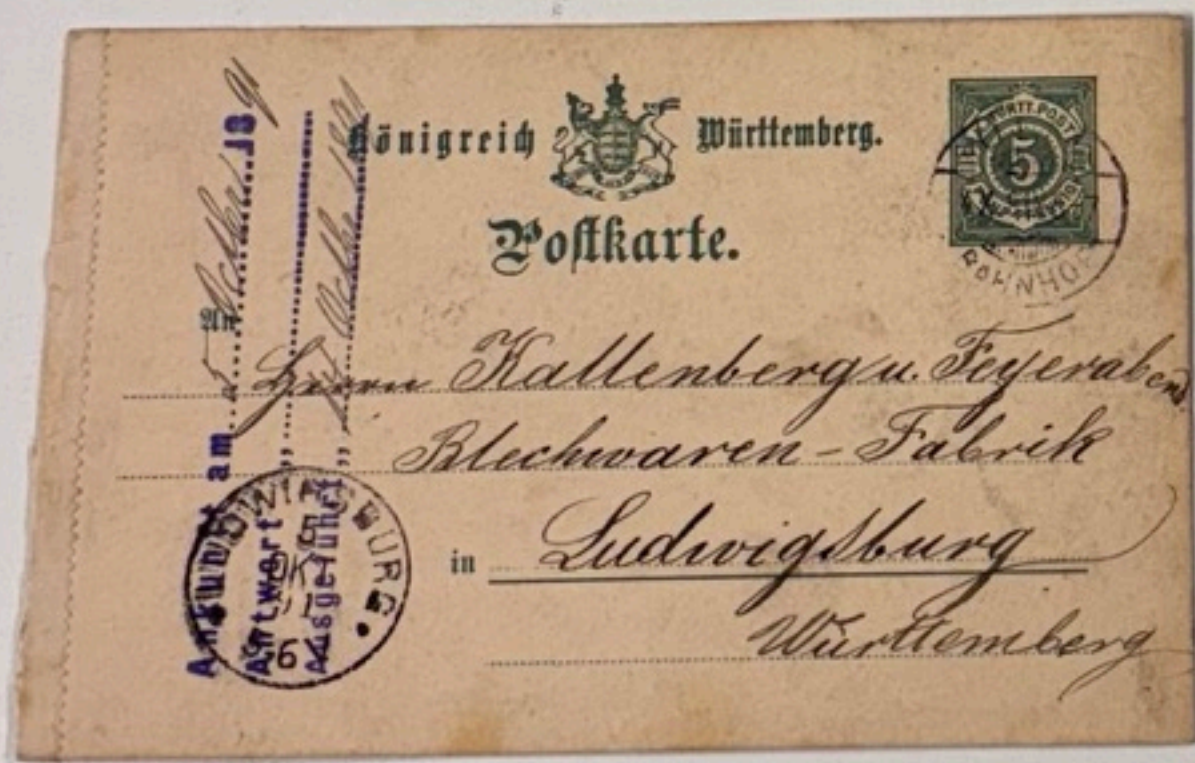 Königreich Württemberg.
Postkarte.
WÜRTT. POST
5
BAHNHOF
An
Herrn Kallenberg u. Feyerabend
Blechwaren-Fabrik
in Ludwigsburg
Württemberg
Ankunft am 5 October 1891
Antwort „
Ausgeführt „ October 1891
LUDWIGSBURG.